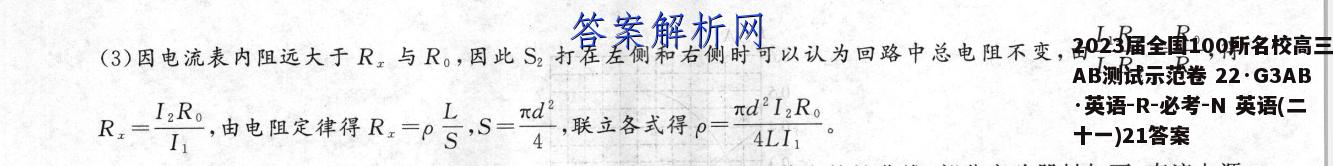 答案解析网
(3)因电流表内阻远大于 Rₓ 与 R₀,因此 S₂ 打在左侧和右侧时可以认为回路中总电阻不变,由
2023届全国100所名校高三
AB测试示范卷 22·G3AB
·英语-R-必考-N 英语(二
十一)21答案
Rₓ=I₂R₀/I₁,由电阻定律得 Rₓ=ρ L/S,S=πd²/4,联立各式得 ρ=πd²I₂R₀/4LI₁。